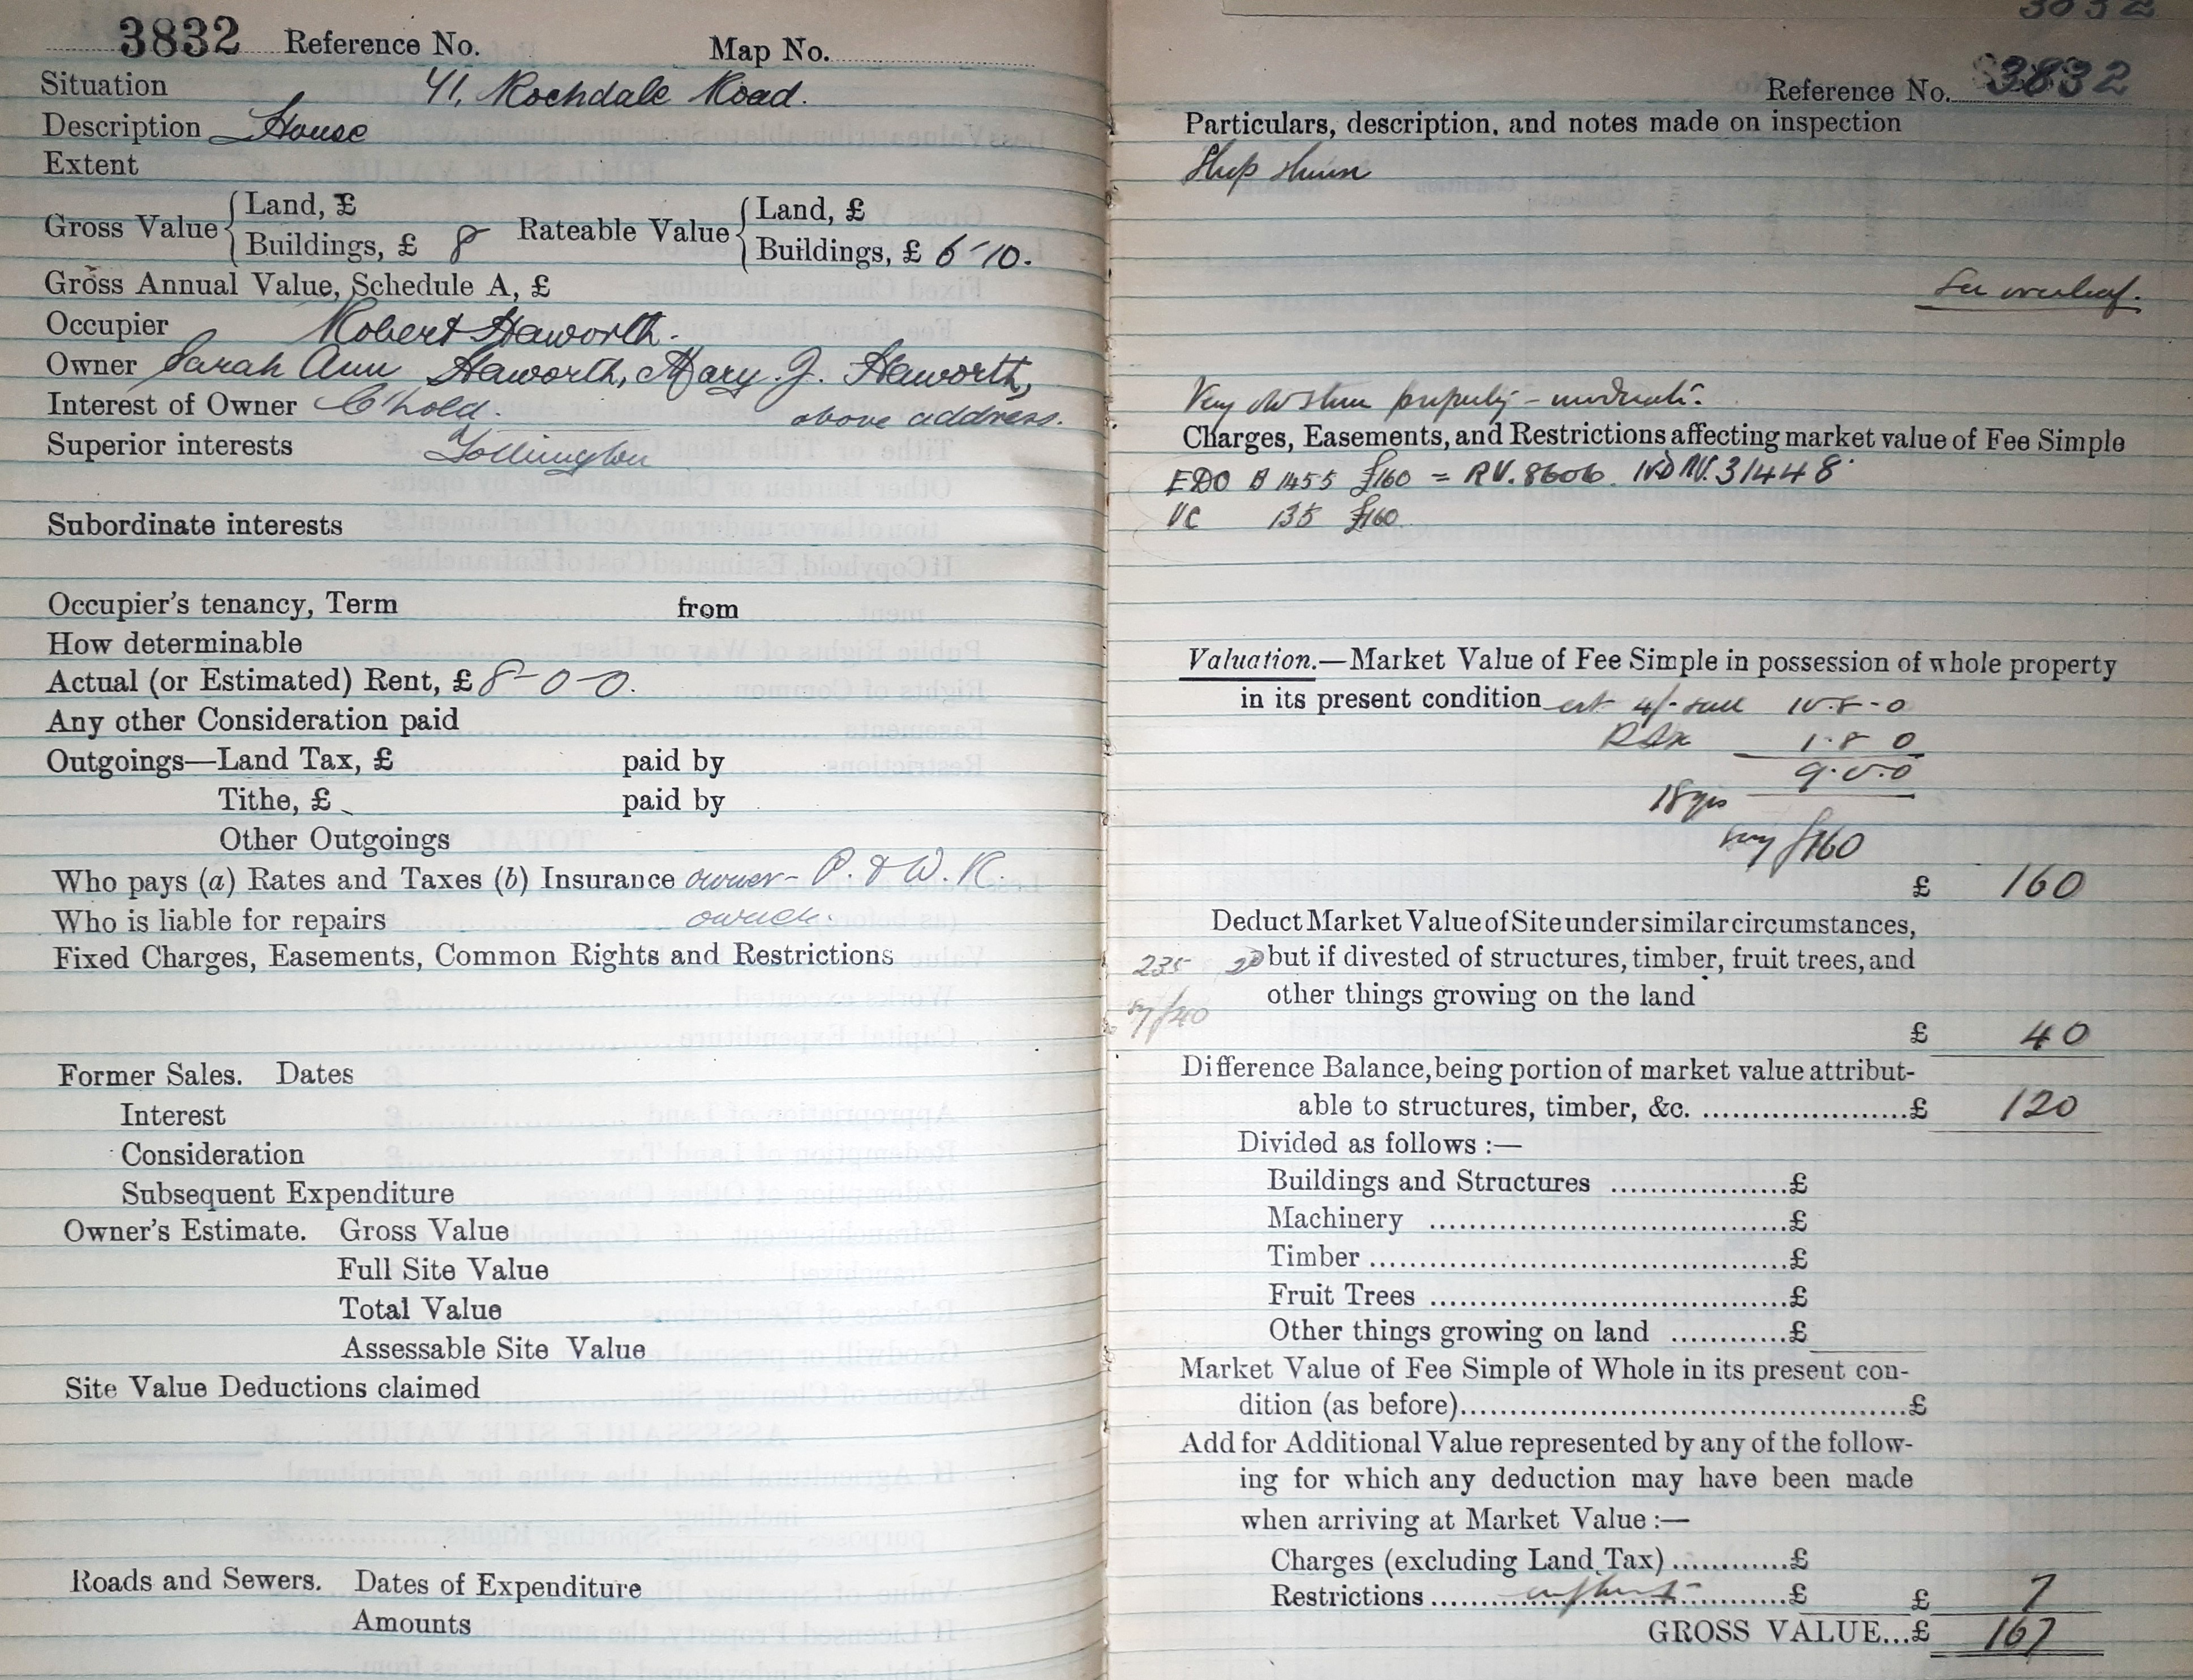 3832 Reference No. Map No.
Situation 41, Rochdale Road.
Description House
Extent
Gross Value { Land, £
Buildings, £ 8
Rateable Value { Land, £
Buildings, £ 6-10.
Gross Annual Value, Schedule A, £
Occupier Robert Haworth.
Owner Sarah Ann Haworth, Mary J. Haworth,
Interest of Owner C'hold. above address.
Superior interests Tottington
Subordinate interests
Occupier's tenancy, Term from
How determinable
Actual (or Estimated) Rent, £ 8-0-0.
Any other Consideration paid
Outgoings—Land Tax, £ paid by
Tithe, £ paid by
Other Outgoings
Who pays (a) Rates and Taxes (b) Insurance owner - P. & W. R.
Who is liable for repairs owner.
Fixed Charges, Easements, Common Rights and Restrictions
Former Sales. Dates
Interest
Consideration
Subsequent Expenditure
Owner's Estimate. Gross Value
Full Site Value
Total Value
Assessable Site Value
Site Value Deductions claimed
Roads and Sewers. Dates of Expenditure
Amounts
3832
Reference No. 3832
Particulars, description, and notes made on inspection
See overleaf.
Very old stone property - moderate.
Charges, Easements, and Restrictions affecting market value of Fee Simple
EDO B 1455 £160 = RV. 8606. IVD RV. 31448
VC 135 £160
Valuation.—Market Value of Fee Simple in possession of whole property
in its present condition est 4/- 10.8-0
1.8 0
9.0.0
18 yrs
say £160
£ 160
Deduct Market Value of Site under similar circumstances,
235 20 but if divested of structures, timber, fruit trees, and
other things growing on the land
say £40
£ 40
Difference Balance, being portion of market value attribut-
able to structures, timber, &c. ....................£ 120
Divided as follows :—
Buildings and Structures ..................£
Machinery ....................................£
Timber..........................................£
Fruit Trees ....................................£
Other things growing on land ............£
Market Value of Fee Simple of Whole in its present con-
dition (as before)............................................£
Add for Additional Value represented by any of the follow-
ing for which any deduction may have been made
when arriving at Market Value :—
Charges (excluding Land Tax)............£
Restrictions......................................£ £ 7
GROSS VALUE...£ 167